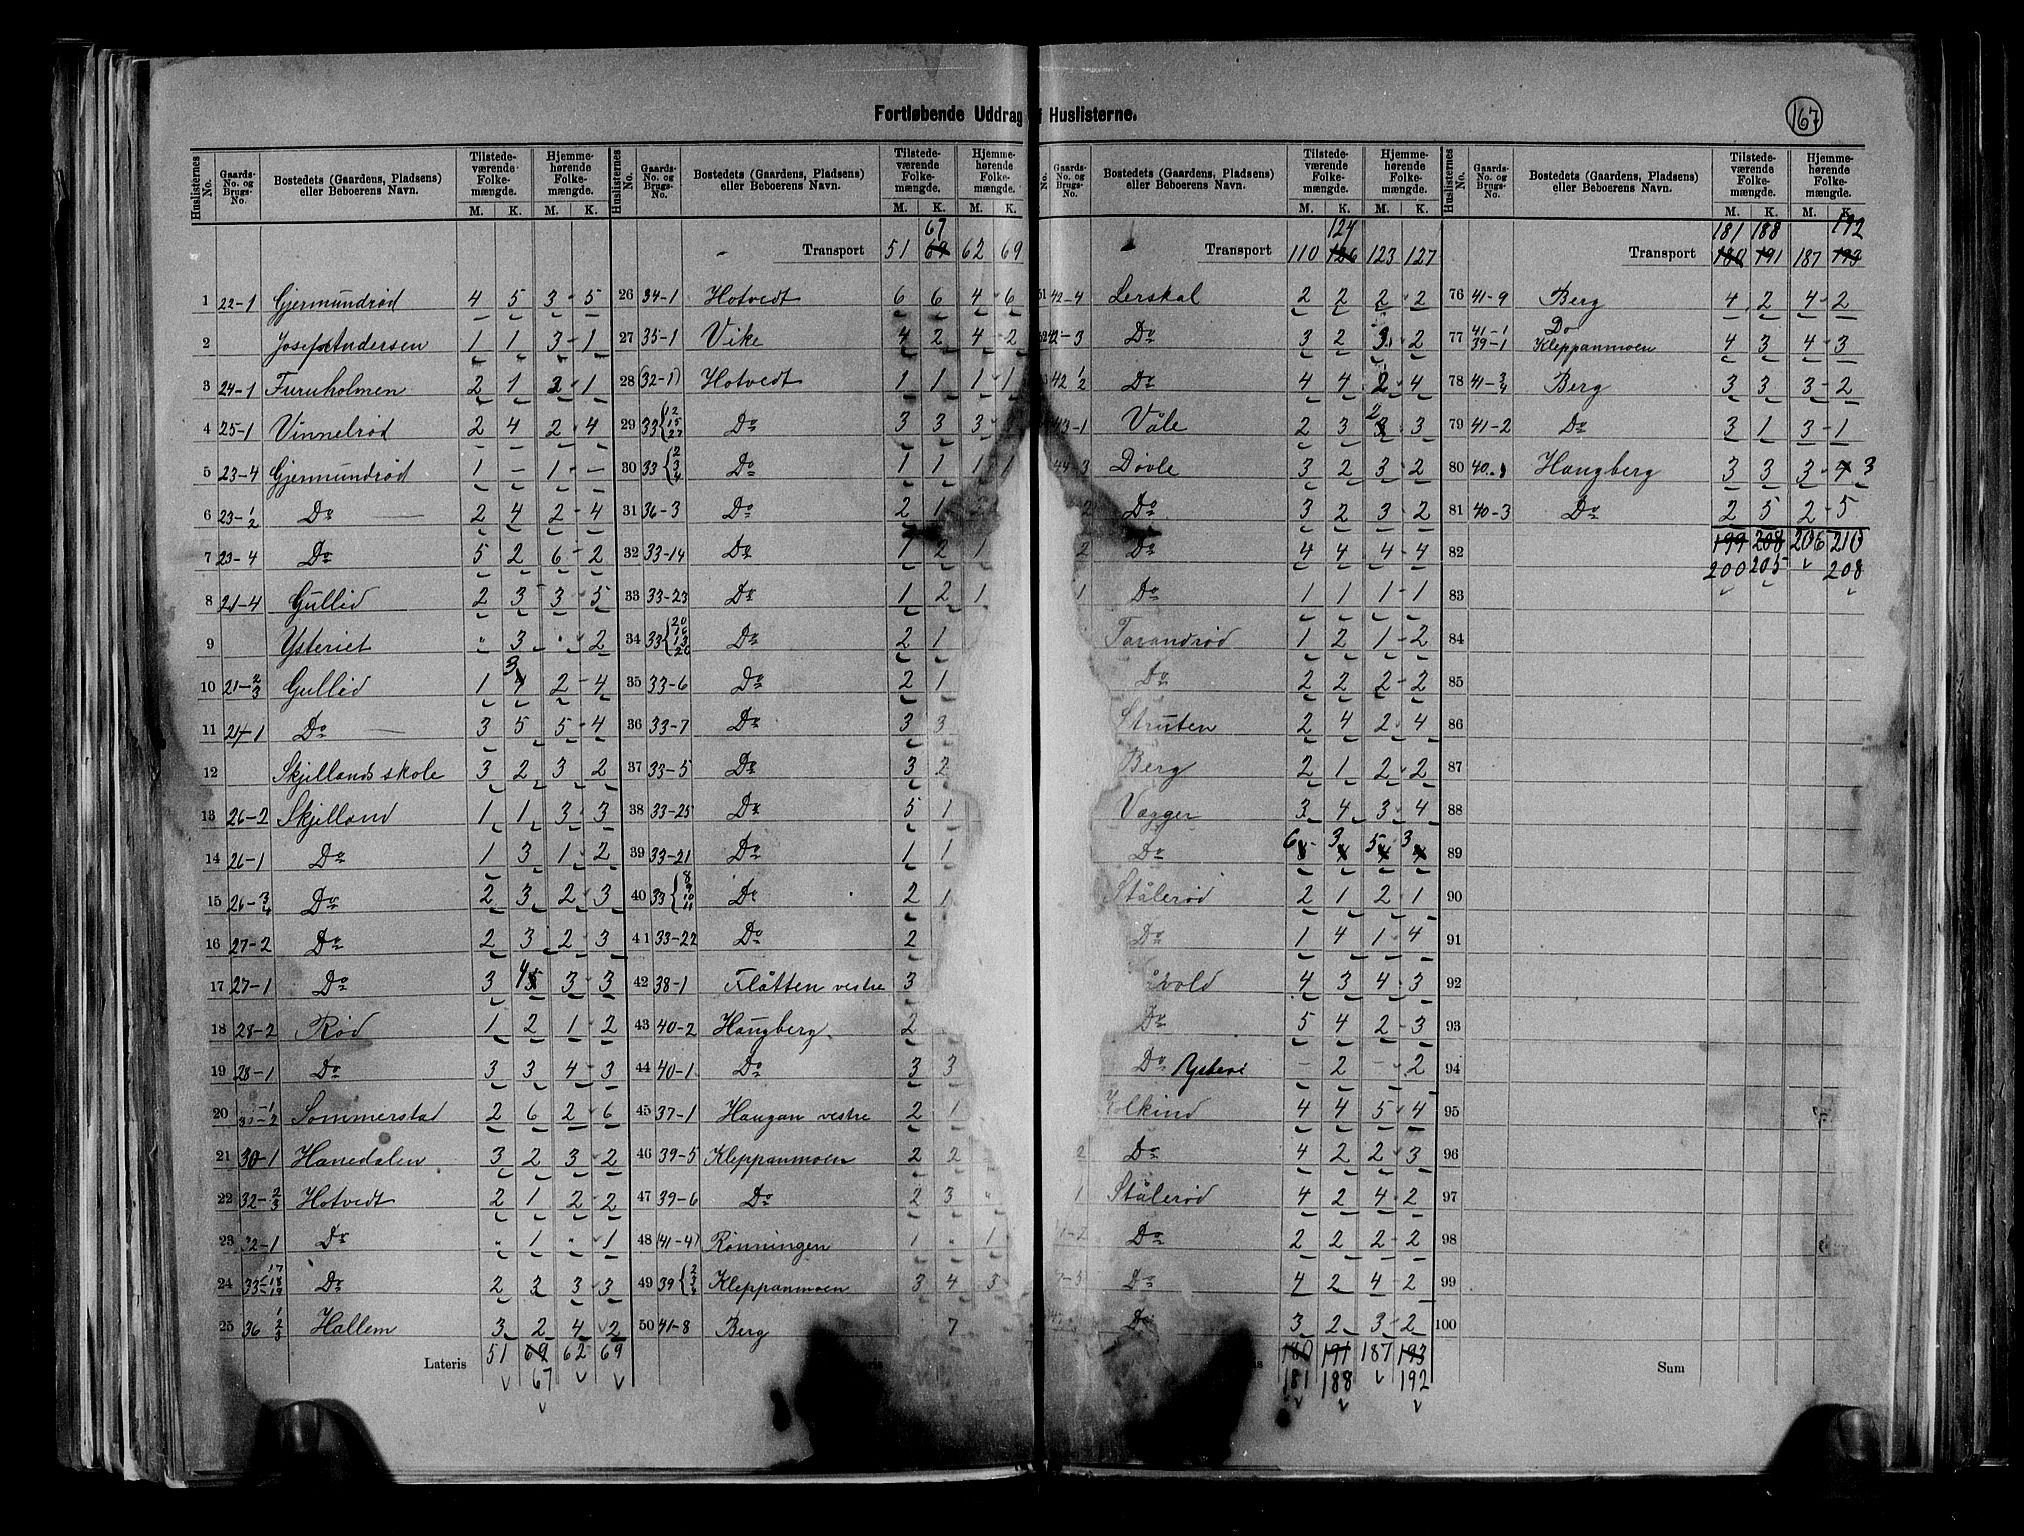 Fortløbende Uddrag Huslisterne.
167
Huslisternes No. Gaards-No. og Brugs-No. Bostedets (Gaardens, Pladsens) eller Beboerens Navn. Tilstedeværende Folkemængde. M. K. Hjemmehørende Folkemængde. M. K.
1 22-1 Gjermundrød 4 5 3 - 5
2 Josef Andersen 1 1 3 - 1
3 24-1 Furuholmen 2 1 2 - 1
4 25-1 Vinnelrød 2 4 2 - 4
5 23-4 Gjermundrød 1 - 1 -
6 23-1/2 Do 2 4 2 - 4
7 23-4 Do 5 2 6 - 2
8 21-4 Gullid 2 3 3 5
9 Ysteriet " 3 " 2
10 21-2/3 Gullid 1 3 2 - 4
11 21-1 Do 3 5 5 - 4
12 Skjellands skole 3 2 3 2
13 26-2 Skjelland 1 1 3 3
14 26-1 Do 1 3 1 2
15 26-3/4 Do 2 3 2 3
16 27-2 Do 2 3 2 3
17 27-1 Do 3 4 3 3
18 28-2 Rød 1 2 1 2
19 28-1 Do 3 3 4 3
20 Sommerstad 2 6 2 6
21 30-1 Hanedalen 3 2 3 2
22 32-2/3 Hotvedt 2 1 2 2
23 32-1 Do " 1 " 1
24 33-17 18 19 Do 2 3 3 3
25 36 1 2 3 Hallem 3 2 4 2
Lateris 51 69 62 69
67
Huslisternes No. Gaards-No. og Brugs-No. Bostedets (Gaardens, Pladsens) eller Beboerens Navn. Tilstedeværende Folkemængde. M. K. Hjemmehørende Folkemængde. M. K.
67
Transport 51 69 62 69
26 34-1 Hotvedt 6 6 4 6
27 35-1 Vike 4 2 4 - 2
28 (32-1) Hotvedt 1 1 1 1
29 33 {12 15 27 Do 3 3 3
30 33 {2 3 4 Do 1 1 1 1
31 36-3 Do 2 1
32 33-14 Do 1 2 1
33 33-23 Do 1 2 1
34 33 Do 2 1
35 33-6 Do 2 1
36 33-7 Do 3 3
37 33-5 Do 3 2
38 33-25 Do 5 1
39 33-21 Do 1 1
40 33 {8 9 10 11 Do 2 1
41 33-22 Do 2
42 38-1 Flåtten vestre 3
43 40-2 Haugberg 2
44 40-1 Do 3 3
45 37-1 Haugan vestre 2 1
46 39-5 Kleppanmoen 2 2
47 39-6 Do 2 3 "
48 (41-4) Rønningen 1 " 1
49 39 {2 3 4 Kleppanmoen 3 4 3
50 41-8 Berg 7
No. Gaards-No. og Brugs-No. Bostedets (Gaardens, Pladsens) eller Beboerens Navn. Tilstedeværende Folkemængde. M. K. Hjemmehørende Folkemængde. M. K.
124
Transport 110 126 123 127
51 42-4 Lerskal 2 2 2 - 2
42-3 Do 3 2 3 - 2
42 1/2 Do 4 4 2 - 4
43-1 Våle 2 3 2 3
44-3 Døvle 3 2 3 - 2
2 Do 3 2 3 2
2 Do 4 4 4 - 4
1 Do 1 1 1 - 1
Tarandrød 1 2 1 - 2
Do 2 2 2 - 2
Struten 2 4 2 4
Berg 2 1 2 2
Vagger 3 4 3 4
Do 6 3 5 3
Stålerød 2 1 2 1
Do 1 4 1 4
åvold 4 3 4 3
Do 5 4 2 - 3
Do Ysteri - 2 - 2
Kolkind 4 4 5 - 4
2 Do 4 2 2 - 3
1 Stålerød 4 2 4 - 2
-2 Do 2 2 2 - 2
-5 Do 4 2 4 - 2
Do 3 2 3 - 2
180 191 187 193
181 188 192
Huslisternes No. Gaards-No. og Brugs-No. Bostedets (Gaardens, Pladsens) eller Beboerens Navn. Tilstedeværende Folkemængde. M. K. Hjemmehørende Folkemængde. M. K.
181 188 192
Transport 180 191 187 193
76 41-9 Berg 4 2 4 - 2
77 41-1 39-1 Do Kleppanmoen 4 3 4 - 3
78 41-3/4 Berg 3 3 3 - 2
79 41-2 Do 3 1 3 - 1
80 40 Haugberg 3 3 3 - 4 3
81 40-3 Do 2 5 2 - 5
82 199 208 206 210
200 205 208
83
84
85
86
87
88
89
90
91
92
93
94
95
96
97
98
99
100
Sum